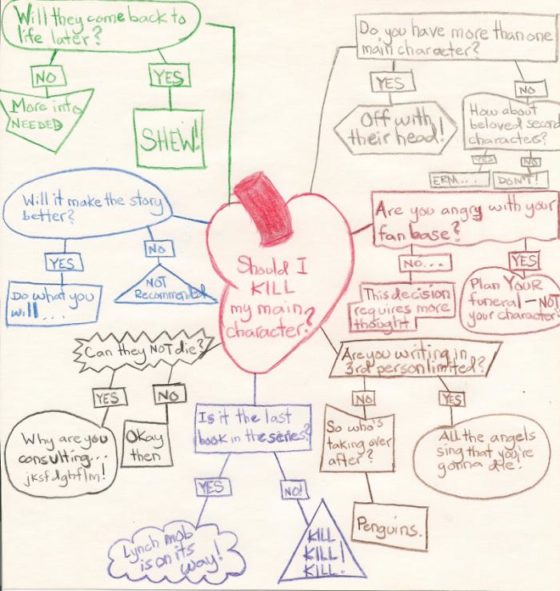 Will they come back to
life later?
NO
YES
More info
NEEDED
SHEW!
Do you have more than one
main character?
YES
NO
Off with
their head!
How about
beloved second
characters?
YES
NO
ERM....
DON'T!
Will it make the story
better?
YES
NO
Do what you
will....
NOT
Recommended
Should I
KILL
my main
character?
Are you angry with your
fan base?
NO...
YES
This decision
requires more
thought
Plan YOUR
funeral - NOT
your character
Can they NOT die?
YES
NO
Why are you
consulting...
Okay
then
Is it the last
book in the series?
YES
NO!
Lynch mob
is on its
way!
KILL
KILL!
KILL.
Are you writing in
3rd person limited?
NO
YES
So who's
taking over
after?
Penguins.
All the angels
sing that you're
gonna die!